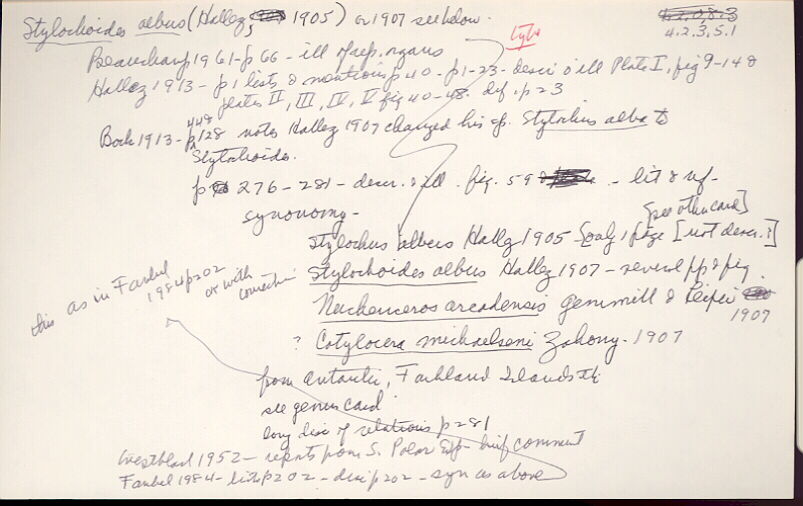 Stylochoides albus (Hallez, 1905) or 1907 see below.
4.2.3.5.1
Beauchamp 1961 - p 66 - ill of rep. organs
Hallez 1913 - p 1 lists & mentions p 40 - p 1-23 - descr & ill Plate I, fig 9-14 &
plates II, III, IV, V fig 40-48. def. p 23
448
Bock 1913 - p 128 notes Hallez 1907 changed his sp. Stylochus alba to
Stylochoides.
p 276-281 - descr. & ill. fig. 59 - lit & ref -
synonomy -
[see other card]
Stylochus albus Hallez 1905 - only 1 page [not descr.?]
Stylochoides albus Hallez 1907 - several pp & fig.
Nuchenceros orcadensis Gemmill & Leiper
1907
? Cotylocera michaelseni Zahony - 1907
this as in Faubel
1984 p 202
or with
correction
from Antarctic, Falkland Islands etc
see genus card
long disc of relations p 281
Westblad 1952 - reports from S. Polar Exp - brief comment
Faubel 1984 - lists p 202 - desc p 202 - syn as above